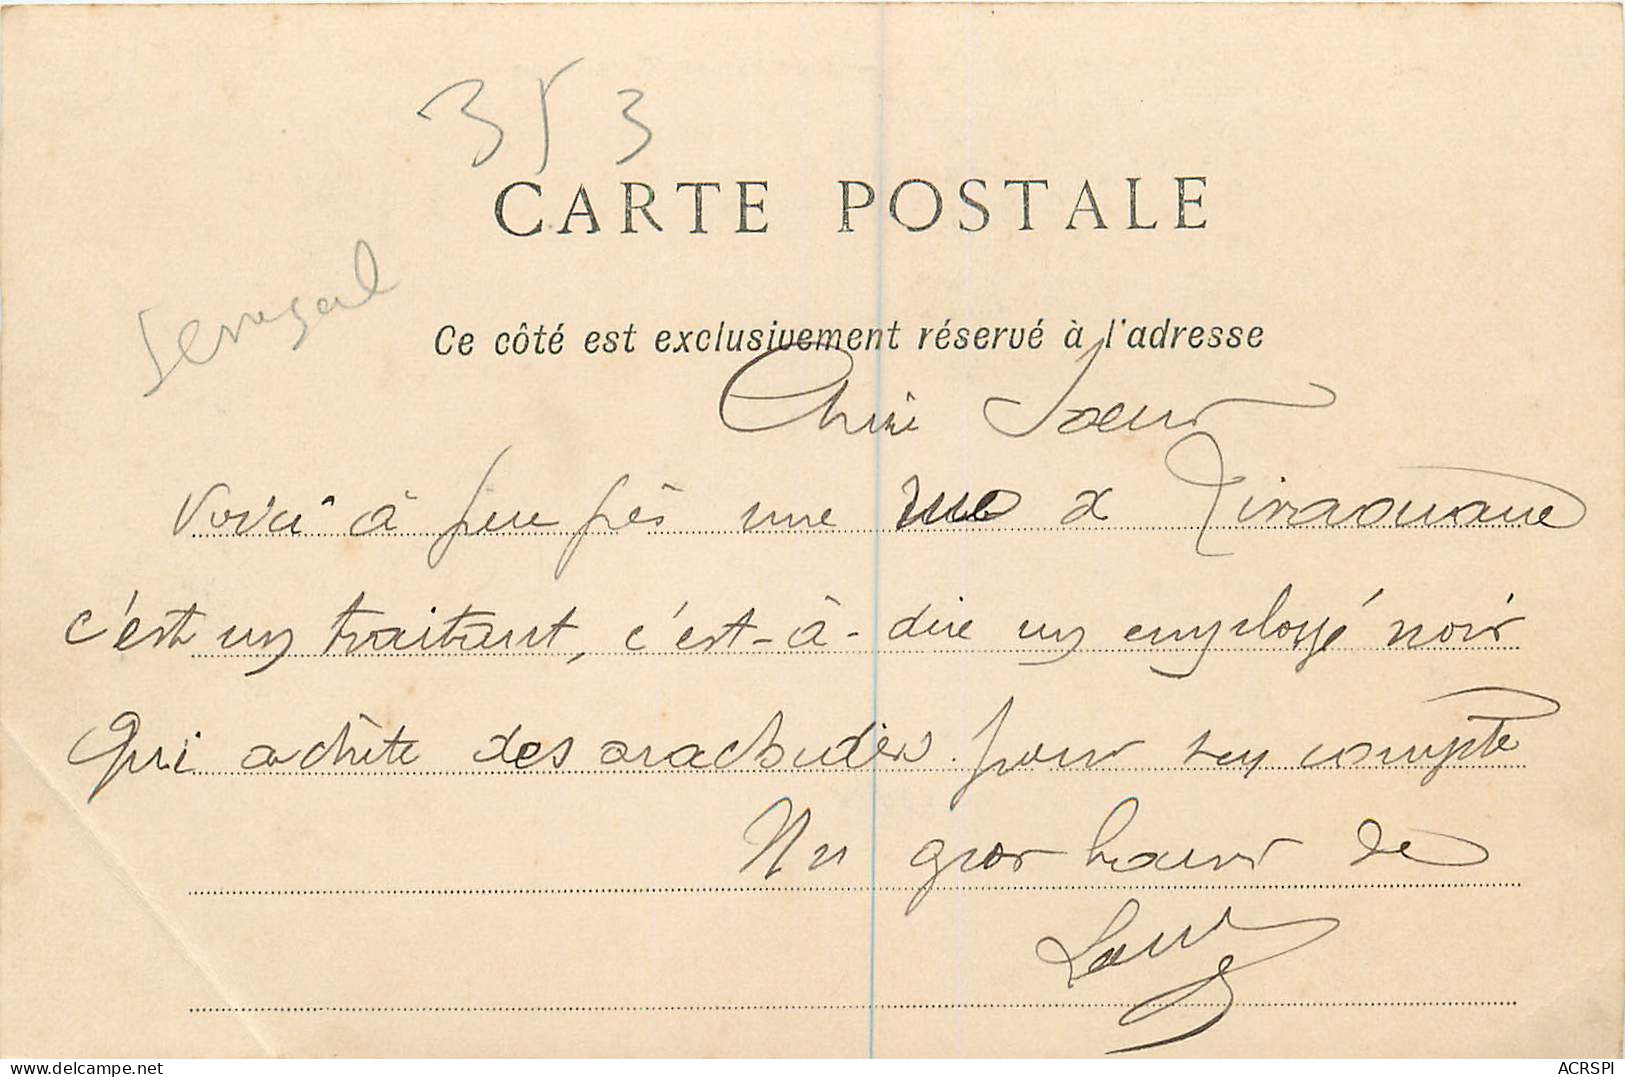 353
CARTE POSTALE
Senegal
Ce côté est exclusivement réservé à l'adresse
Chère Soeur
Voici à peu près une rue de Tivaouane
c'est un traitant, c'est-à-dire un employé noir
Qui achète des arachides pour son compte
Un gros baiser de
Louis
www.delcampe.net
ACRSPI